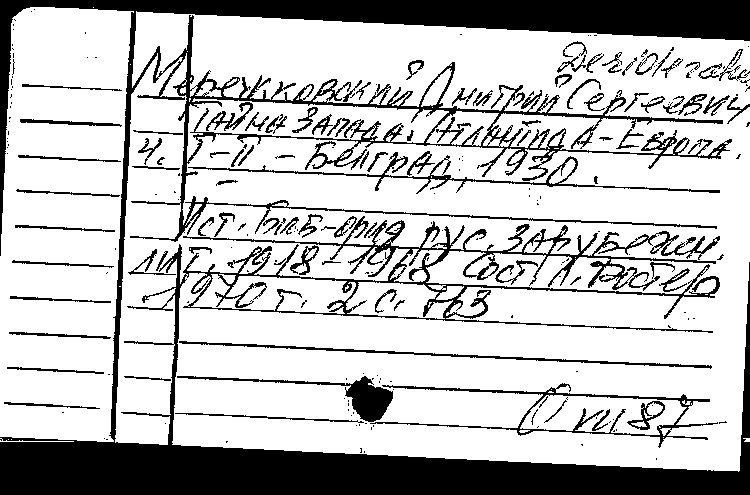 Мережковский Дмитрий Сергеевич.
Тайна Запада. Атлантида-Европа.
ч. I-II. - Белград, 1930.
Ист. Библ-фия рус. зарубежн.
лит. 1918-1968 Сост. Л. Фостер
1970 т. 2 с. 763